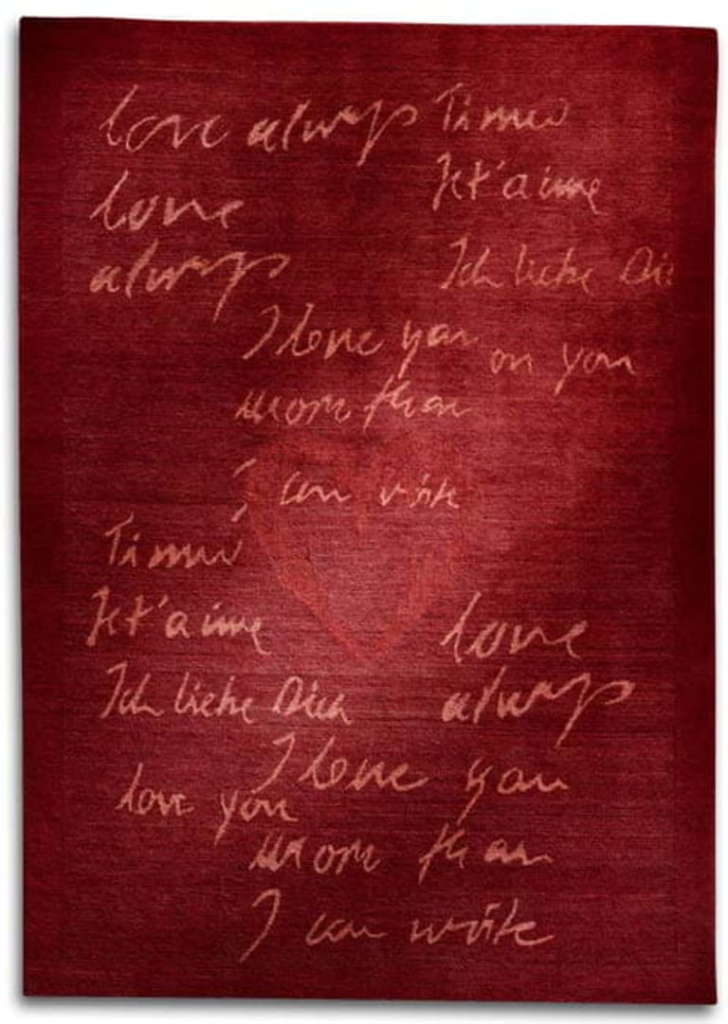 love always
love
always
Ti amo
Je t'aime
Ich liebe Dich
I love you
on you
more than
I can write
Ti amo
Je t'aime
Ich liebe Dich
love
always
I love you
love you
more than
I can write